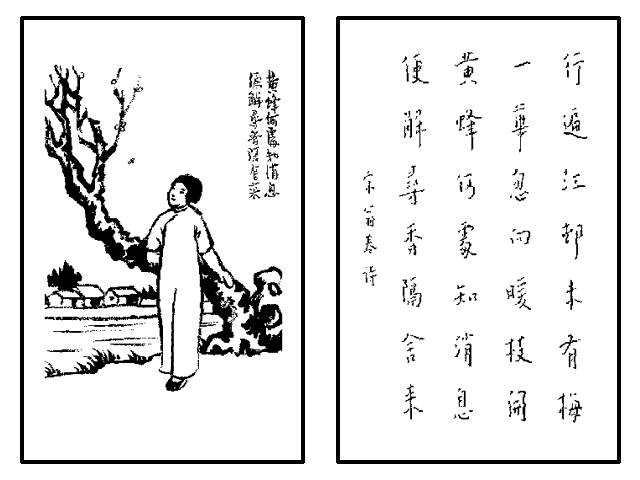 黄蜂何處知消息
便解尋香隔舍来
行遍江邨未有梅
一華忽向暖枝開
黄蜂何處知消息
便解尋香隔舍来
宋翁卷詩